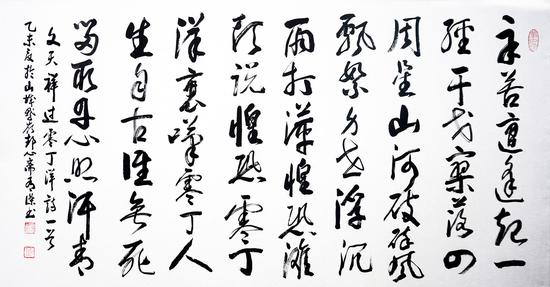 辛苦遭逢起一
經干戈寥落四
周星山河破碎風
飄絮身世浮沉
雨打萍惶恐灘
頭說惶恐零丁
洋裏嘆零丁人
生自古誰無死
留取丹心照汗青
文天祥過零丁洋詩一首
乙未夏於山城 書